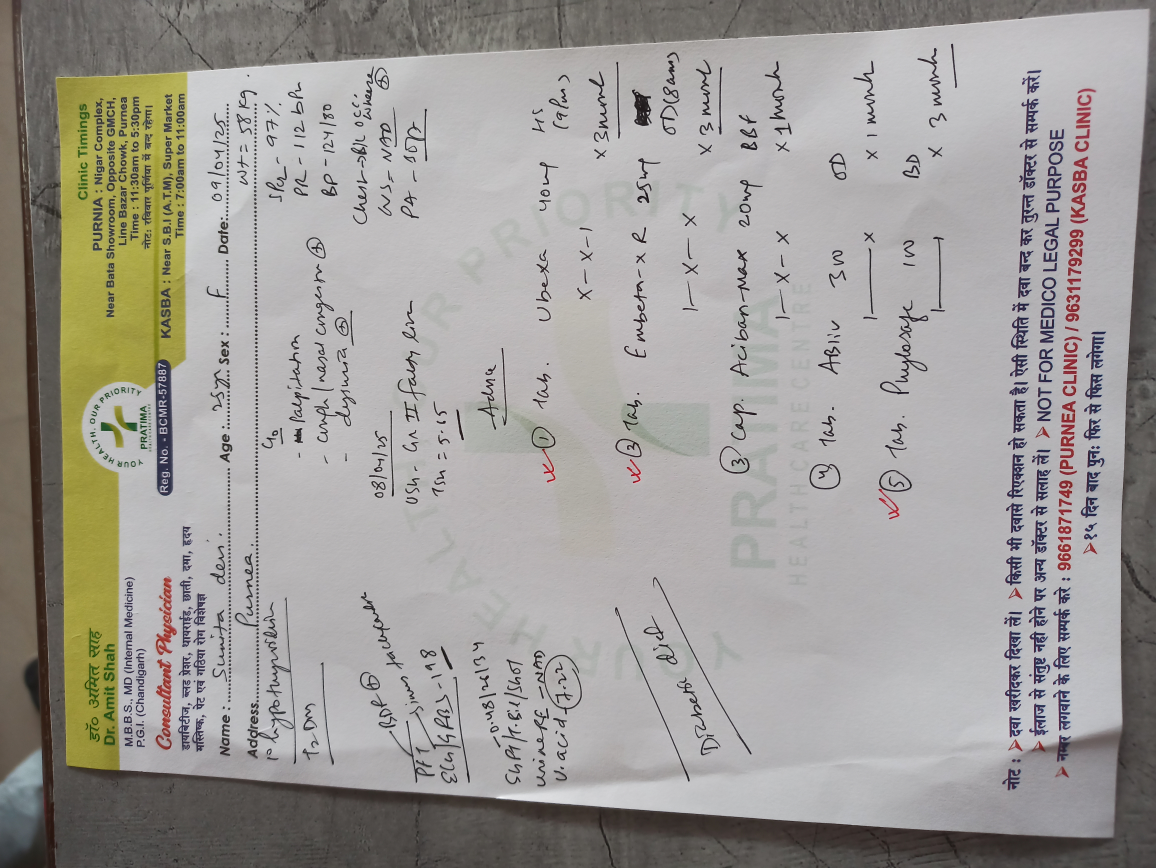 डॉ० अमित साह
Dr. Amit Shah
M.B.B.S., MD (Internal Medicine)
P.G.I. (Chandigarh)
Consultant Physician
डायबिटीज, ब्लड प्रेशर, थायराईड, छाती, दमा, हृदय
मस्तिष्क, पेट एवं गठिया रोग विशेषज्ञ
YOUR HEALTH, OUR PRIORITY
PRATIMA
Reg. No. - BCMR-57887
Clinic Timings
PURNIA : Nigar Complex,
Near Bata Showroom, Opposite GMCH,
Line Bazar Chowk, Purnea
Time : 11:30am to 5:30pm
नोट: रविवार पूर्णिया में बन्द रहेगा।
KASBA : Near S.B.I (A.T.M), Super Market
Time : 7:00am to 11:00am
Name : Sunita devi. Age : 25 Sex : F Date: 09/04/25
Address Purnea
wt = 58 kg.
1° hypothyroidism
T2DM
C/o
- Palpitation
- cough/nasal congestion (+)
- dysuria (+)
SpO2 - 97%
PR - 112 bpm
BP - 124/80
Chest - B/L occ. wheeze (+)
CVS - NAD
PA - soft
08/04/25
USG - Gr II fatty liver
TSH = 5.65
PFT
ECG/GRBS - 198
Sinus tachycardia
SGPT/T.Bil/SGOT
- 0.48/26/34
Urine RE - NAD
U. acid 7.22
Diabetic diet
Advice
① Tab. Ubexa 40mg HS (9pm)
X - X - 1 x 3 month
② Tab. Embeta-XR 25mg OD (8am)
1 - X - X x 3 month
③ Cap. Aciban-Max 20mg BBF
1 - X - X x 1 month
④ Tab. ABliv 300 OD
1 X x 1 month
⑤ Tab. BD
1 1 x 3 month
YOUR HEALTH, OUR PRIORITY
PRATIMA
HEALTHCARE CENTRE
नोट : ➤ दवा खरीदकर दिखा लें। ➤ किसी भी दवासे रिएक्शन हो सकता है। ऐसी स्थिति में दवा बन्द कर तुरन्त डॉक्टर से सम्पर्क करें।
➤ ईलाज से संतुष्ट नही होने पर अन्य डॉक्टर से सलाह लें। ➤ NOT FOR MEDICO LEGAL PURPOSE
➤ नम्बर लगवाने के लिए सम्पर्क करे : 9661871749 (PURNEA CLINIC) / 9631179299 (KASBA CLINIC)
➤ १५ दिन बाद पुनः फिर से फिस लगेगा।